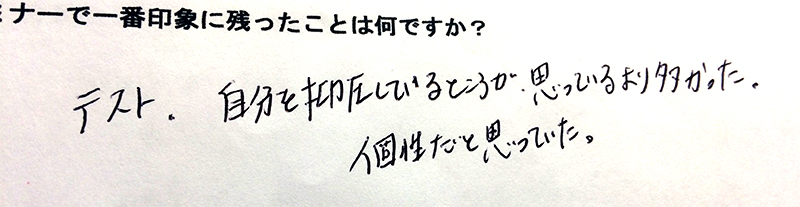 ミナーで一番印象に残ったことは何ですか？
テスト. 自分を抑圧しているところが、思っているより多かった。
個性だと思っていた。